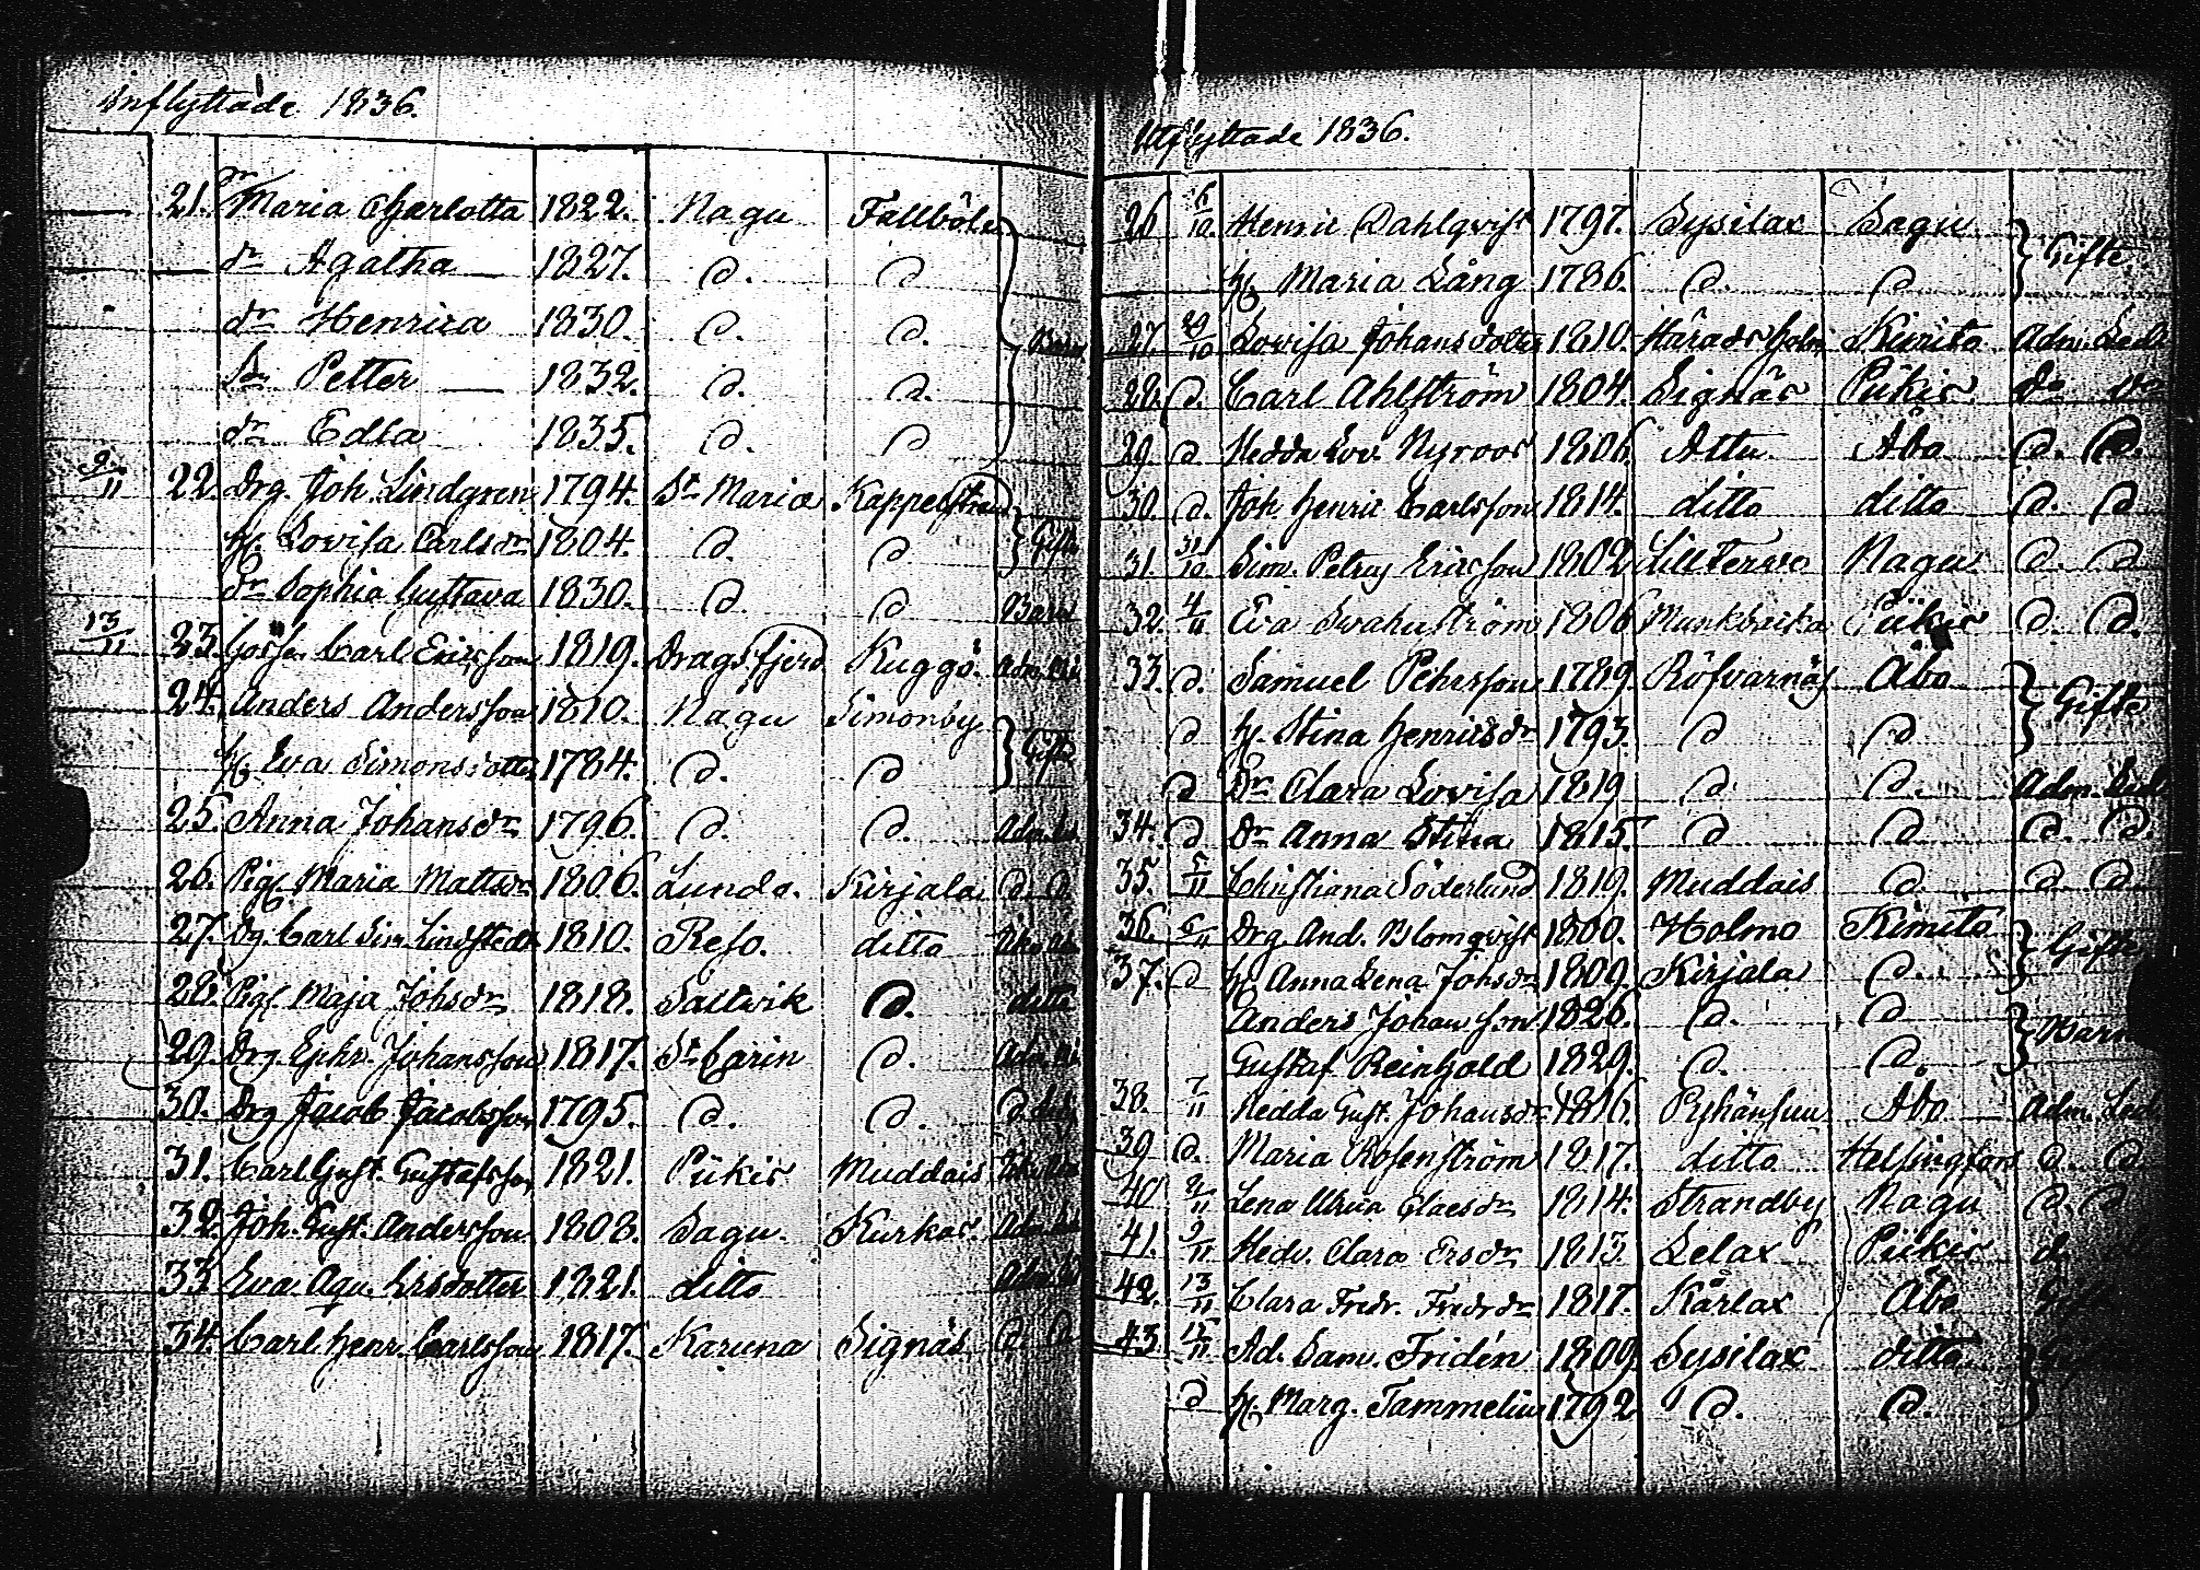 Inflyttade 1836.
21. dr Maria Charlotta 1822. Nagu Fallböle
dr Agatha 1827. d. d
dr Henrica 1830. d. d.
Sn Petter 1832. d. d. Barn
dr Edla 1835. d. d
9/11 22. Drg. Joh. Lindgren 1794. St Mariæ Kappelstrand
h. Lovisa Carlsdr 1804. d. d. Gifte
dr Sophia Gustava 1830. d. d Barn
13/11 23. Goss. Carl Ericsson 1819. Dragsfjerd Kuggö.
24. Anders Andersson 1810. Nagu Simonby
h. Eva Simonsdotter 1784. d. d Gifte
25. Anna Johansdr 1796. d. d.
26. Pig. Maria Mattsdr 1806. Lundo. Kirjala d. d.
27. Dg. Carl Sim. Lindstedt 1810. Reso. ditto
28. Pig. Maja Johsdr 1818. Saltvik d. ditto
29. Drg. Ephr. Johansson 1817. St Carin d.
30. Drg Jacob Jacobsson 1795. d. d.
31. Carl Gust. Gustafsson 1821. Pükis Muddais
32. Joh. Gust. Andersson 1808. Sagu. Kurkas.
33 Eva Agu. Ersdotter 1821. ditto
34. Carl Henr. Carlsson 1817. Karuna Signäs d. d.
Utflyttade 1836.
26 6/10. Henric Dahlqvist 1797. Sysilax Sagu
h. Maria Lång 1786. d. d Gifte
27. 29/10 Lovisa Johansdotter 1810. Häradsholm Kimito Adm. Led.
28. d. Carl Ahlström 1804. Signäs Pükis do do
29. d. Hedda Lov. Nyroos 1806. Attu Åbo d. d.
30. d. Joh. Henric Carlsson 1814. ditto ditto d. d
31. 31/10. Sim. Petrus Ericsson 1802 Lilltervo Nagu d. d
32. 4/11 Eva Svahnström 1806 Munkbacka Pükis d. d.
33. d. Samuel Pehrsson 1789. Röfvarnäs Åbo
d h. Stina Henricsdr 1793. d d Gifte
d Dr Clara Lovisa 1819 d d. Adm. Led
34. d Dr Anna Stina 1815. d d. d. d.
35. 5/11 Christiana Söderlund 1819. Muddais d. d. d.
36. 6/11 Drg. And. Blomqvist 1800. Holmo Kimito
37. d h. Anna Lena Johsdr 1809. Kirjala d. Gifte
Anders Johansson 1826. d. d
Gustaf Reinhold 1829. d. d. Barn
38. 7/11 Hedda Gust. Johansdr 1816. Pyhänsuu Åbo Adm. Led.
39 d. Maria Rosenström 1817. ditto Helsingfors d. d
40 8/11 Lena Ulrica Claesdr 1814. Strandby Nagu d. d
41. 9/11 Hedv. Clara Ersdr 1813. Lelax Pükis d.
42. 13/11 Clara Fredr. Fredrdr 1817. Kärlax Åbo
43. 15/11 Ad. Sam. Fridén 1809 Sysilax ditto
d h. Marg. Tammelin 1792 d. d.